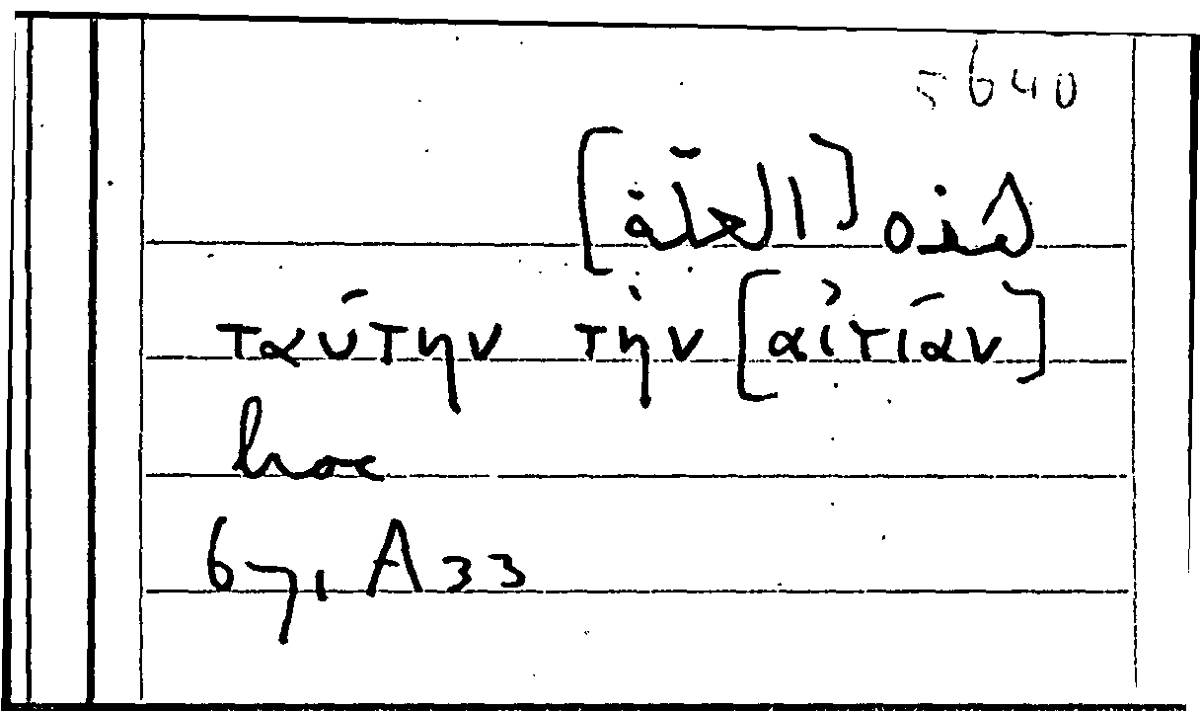 5640
هذه [العلّة]
ταύτην τὴν [αἰτίαν]
hoc
671 A33